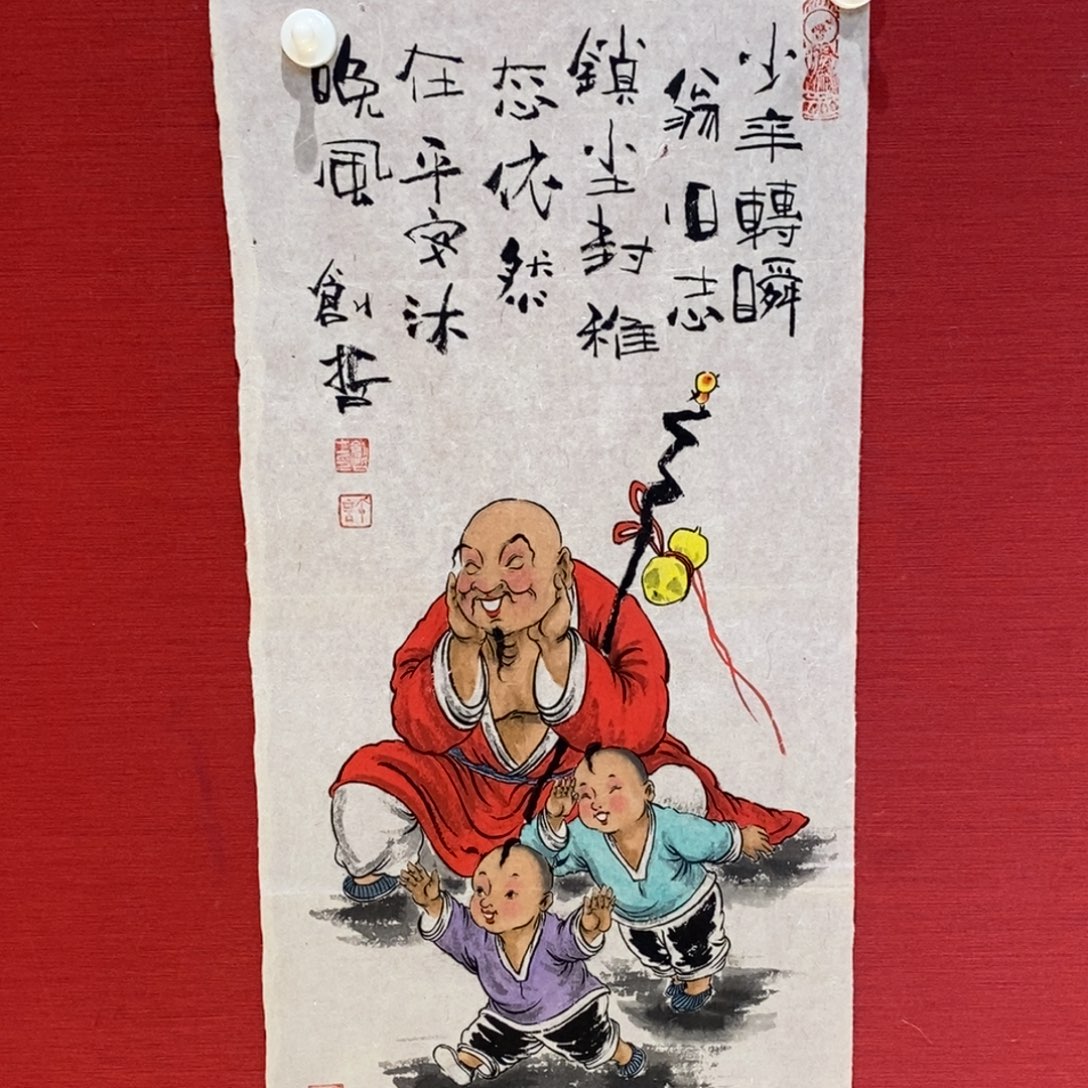 少年轉瞬
翁旧志
鎖尘封稚
蕊依然
在平安沐
晚風
創哲